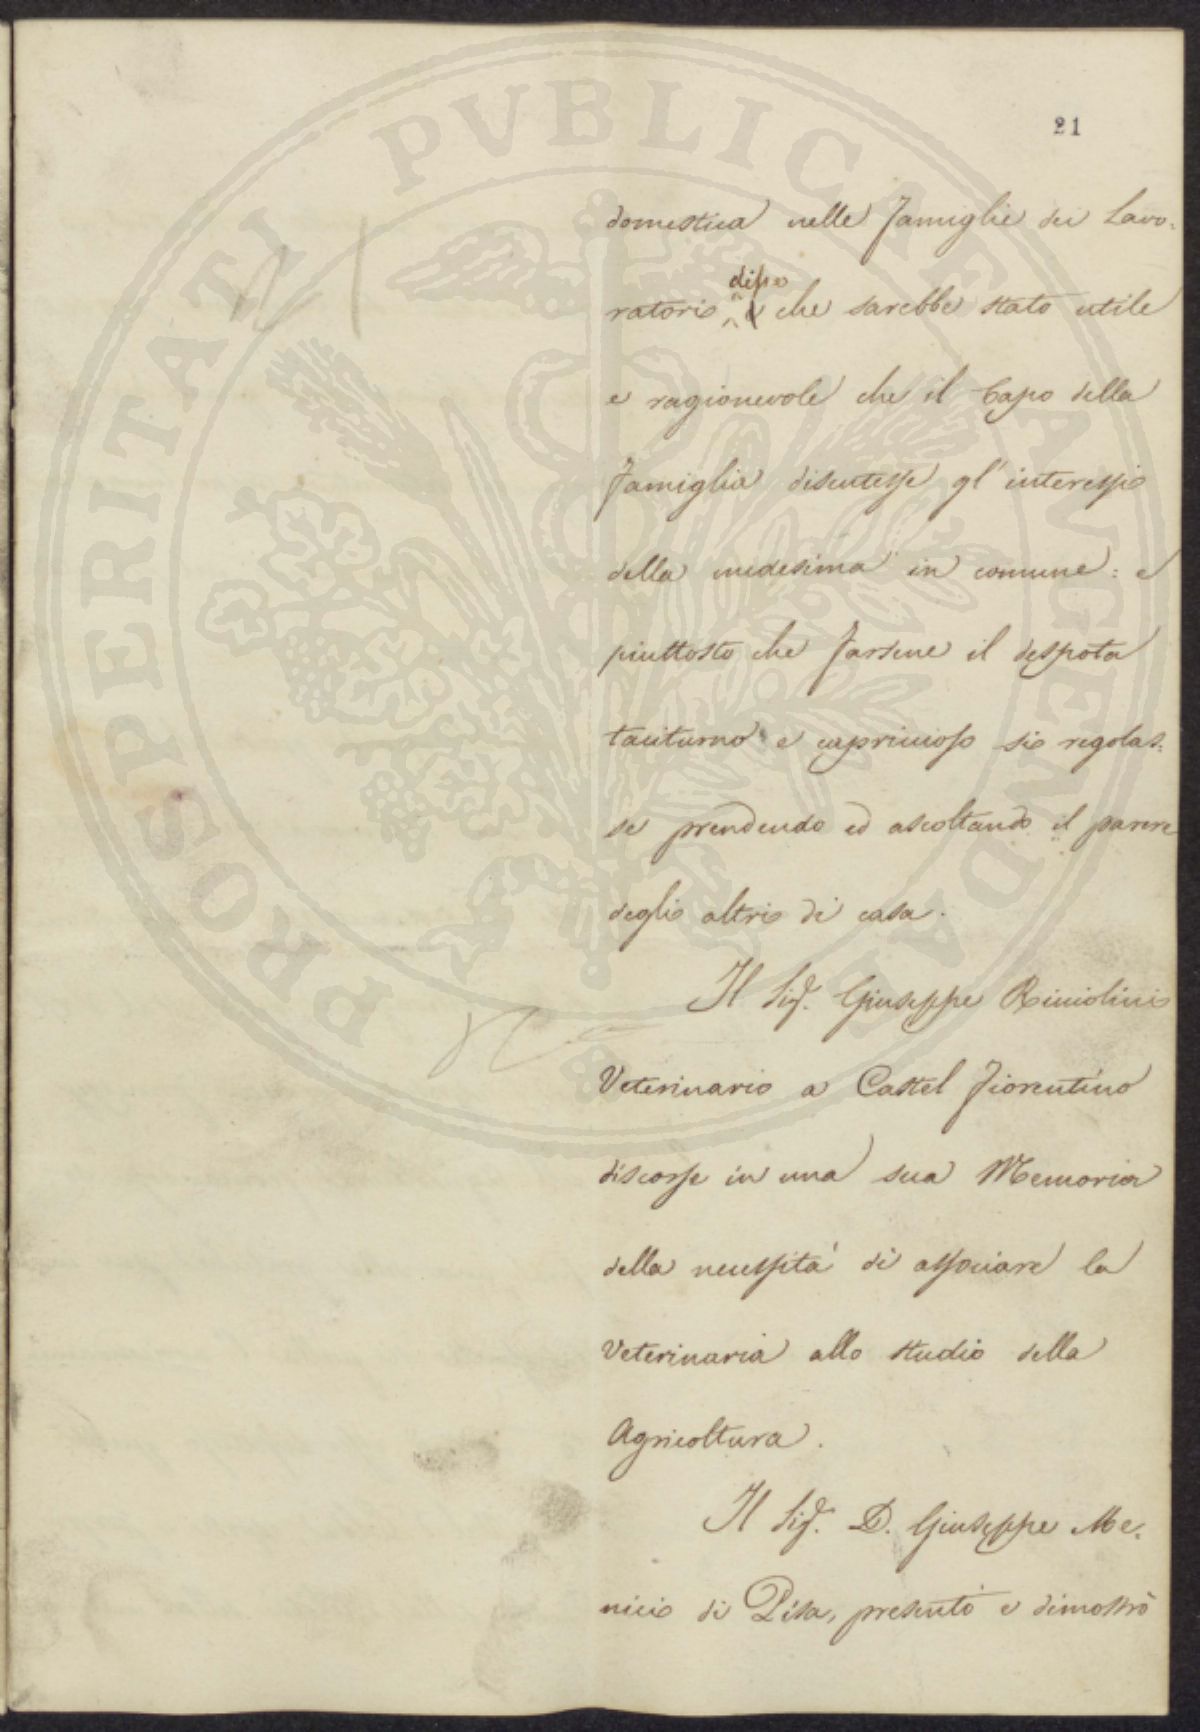 21
domestica nelle famiglie dei Lavo:
ratori disse che sarebbe stato utile
e ragionevole che il Capo della
famiglia discutesse gl'interessi
della medesima in comune: e
piuttosto che farsene il despota
taciturno e capriccioso si regolas:
se prendendo ed ascoltando il parere
degli altri di casa.
Il Sig. Giuseppe
Veterinario a Castel Fiorentino
discorse in una sua Memoria
della necessità di associare la
Veterinaria allo studio della
Agricoltura.
Il Sig. D. Giuseppe Me:
nici di Pisa, presentò e dimostrò
PROSPERITATI PVBLICAE AVGENDAE